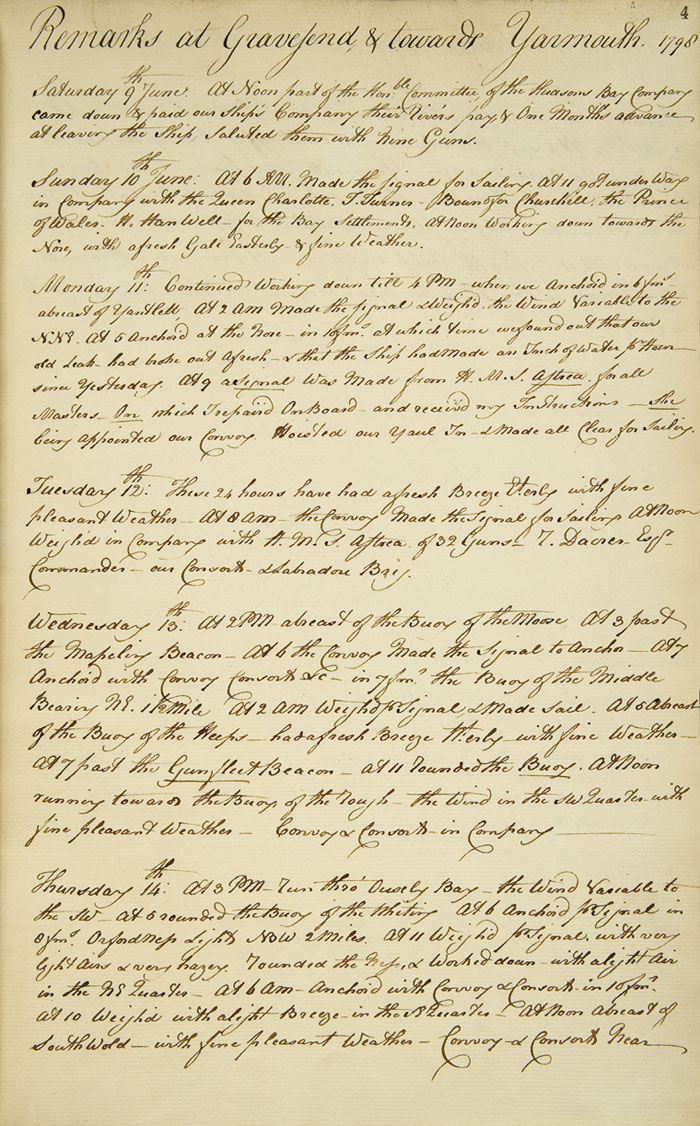 4
Remarks at Gravesend, & towards Yarmouth. 1798
Saturday 9th June. At Noon part of the Honble Committee, of the Hudsons Bay Company
came down & paid our Ship's Company their River's pay & One Month's advance
at leaving the Ship, Saluted them with Nine Guns.
Sunday 10th June: At 6 AM. Made the signal for Sailing. At 11 got under Way
in Company with the Queen Charlotte. J. Turner - Bound for Churchill, the Prince
of Wales. H. HanWell - for the Bay Settlements, at Noon Working down towards the
Nore, with a fresh Gale Easterly & fine Weather.
Monday 11th: Continued Working down till 4 PM - when we Anchord in 6 fms
abreast of Yantlett. At 2 AM Made the signal & Weighd. the Wind Variable to the
NNE. At 5 Anchord at the Nore - in 10 fms. at which time we found out that our
old Leak had broke out afresh - & that the Ship had Made an Inch of Water pr Hour -
since Yesterday. At 9 a Signal Was Made from H. M. S. Astrea for all
Masters - On which I repaird On Board - and receivd my Instructions - She
being appointed our Convoy. Hoisted our Yaul In - & Made all Clear for Sailing.
Tuesday 12th: These 24 hours have had a fresh Breeze Wterly with fine
pleasant Weather - At 8 AM - the Convoy Made the Signal for Sailing At Noon
Weighd in Company with H. M. S. Astrea of 32 Guns - Dacres Esqr
Commander - our Consorts & Labradore Brig.
Wednesday 13th: At 2 PM abreast of the Buoy of the Moose At 3 past
the Mapeling Beacon - At 6 the Convoy Made the Signal to Anchor - At 7
Anchord with Convoy Consorts &c - in 7 fms the Buoy of the Middle
Bearing NE. 1½ Mile At 2 AM Weighd pr Signal, & Made Sail. At 5 Abreast
of the Buoy of the Heeps - had a fresh Breeze Wterly with fine Weather -
At 7 past the Gunfleet Beacon - at 11 rounded the Buoy. At Noon
running towards the Buoy of the Rough - the Wind in the SW Quarter with
fine pleasant Weather - Convoy & Consorts in Company
Thursday 14th: At 3 PM - run thro' Ousely Bay - the Wind Variable to
the SW at 5 rounded the Buoy of the Whiting At 6 Anchord pr Signal in
8 fms. Orfordness Lights NbW 2 Miles. At 11 Weighd pr Signal, with very
light Airs & very hazey. rounded the Ness, & Worked down - with a light Air
in the NE Quarter - At 6 AM - Anchord with Convoy & Consorts in 10 fms.
At 10 Weighd with a light Breeze in the Quarter - At Noon abreast of
SouthWold - with fine pleasant Weather - Convoy & Consorts Near